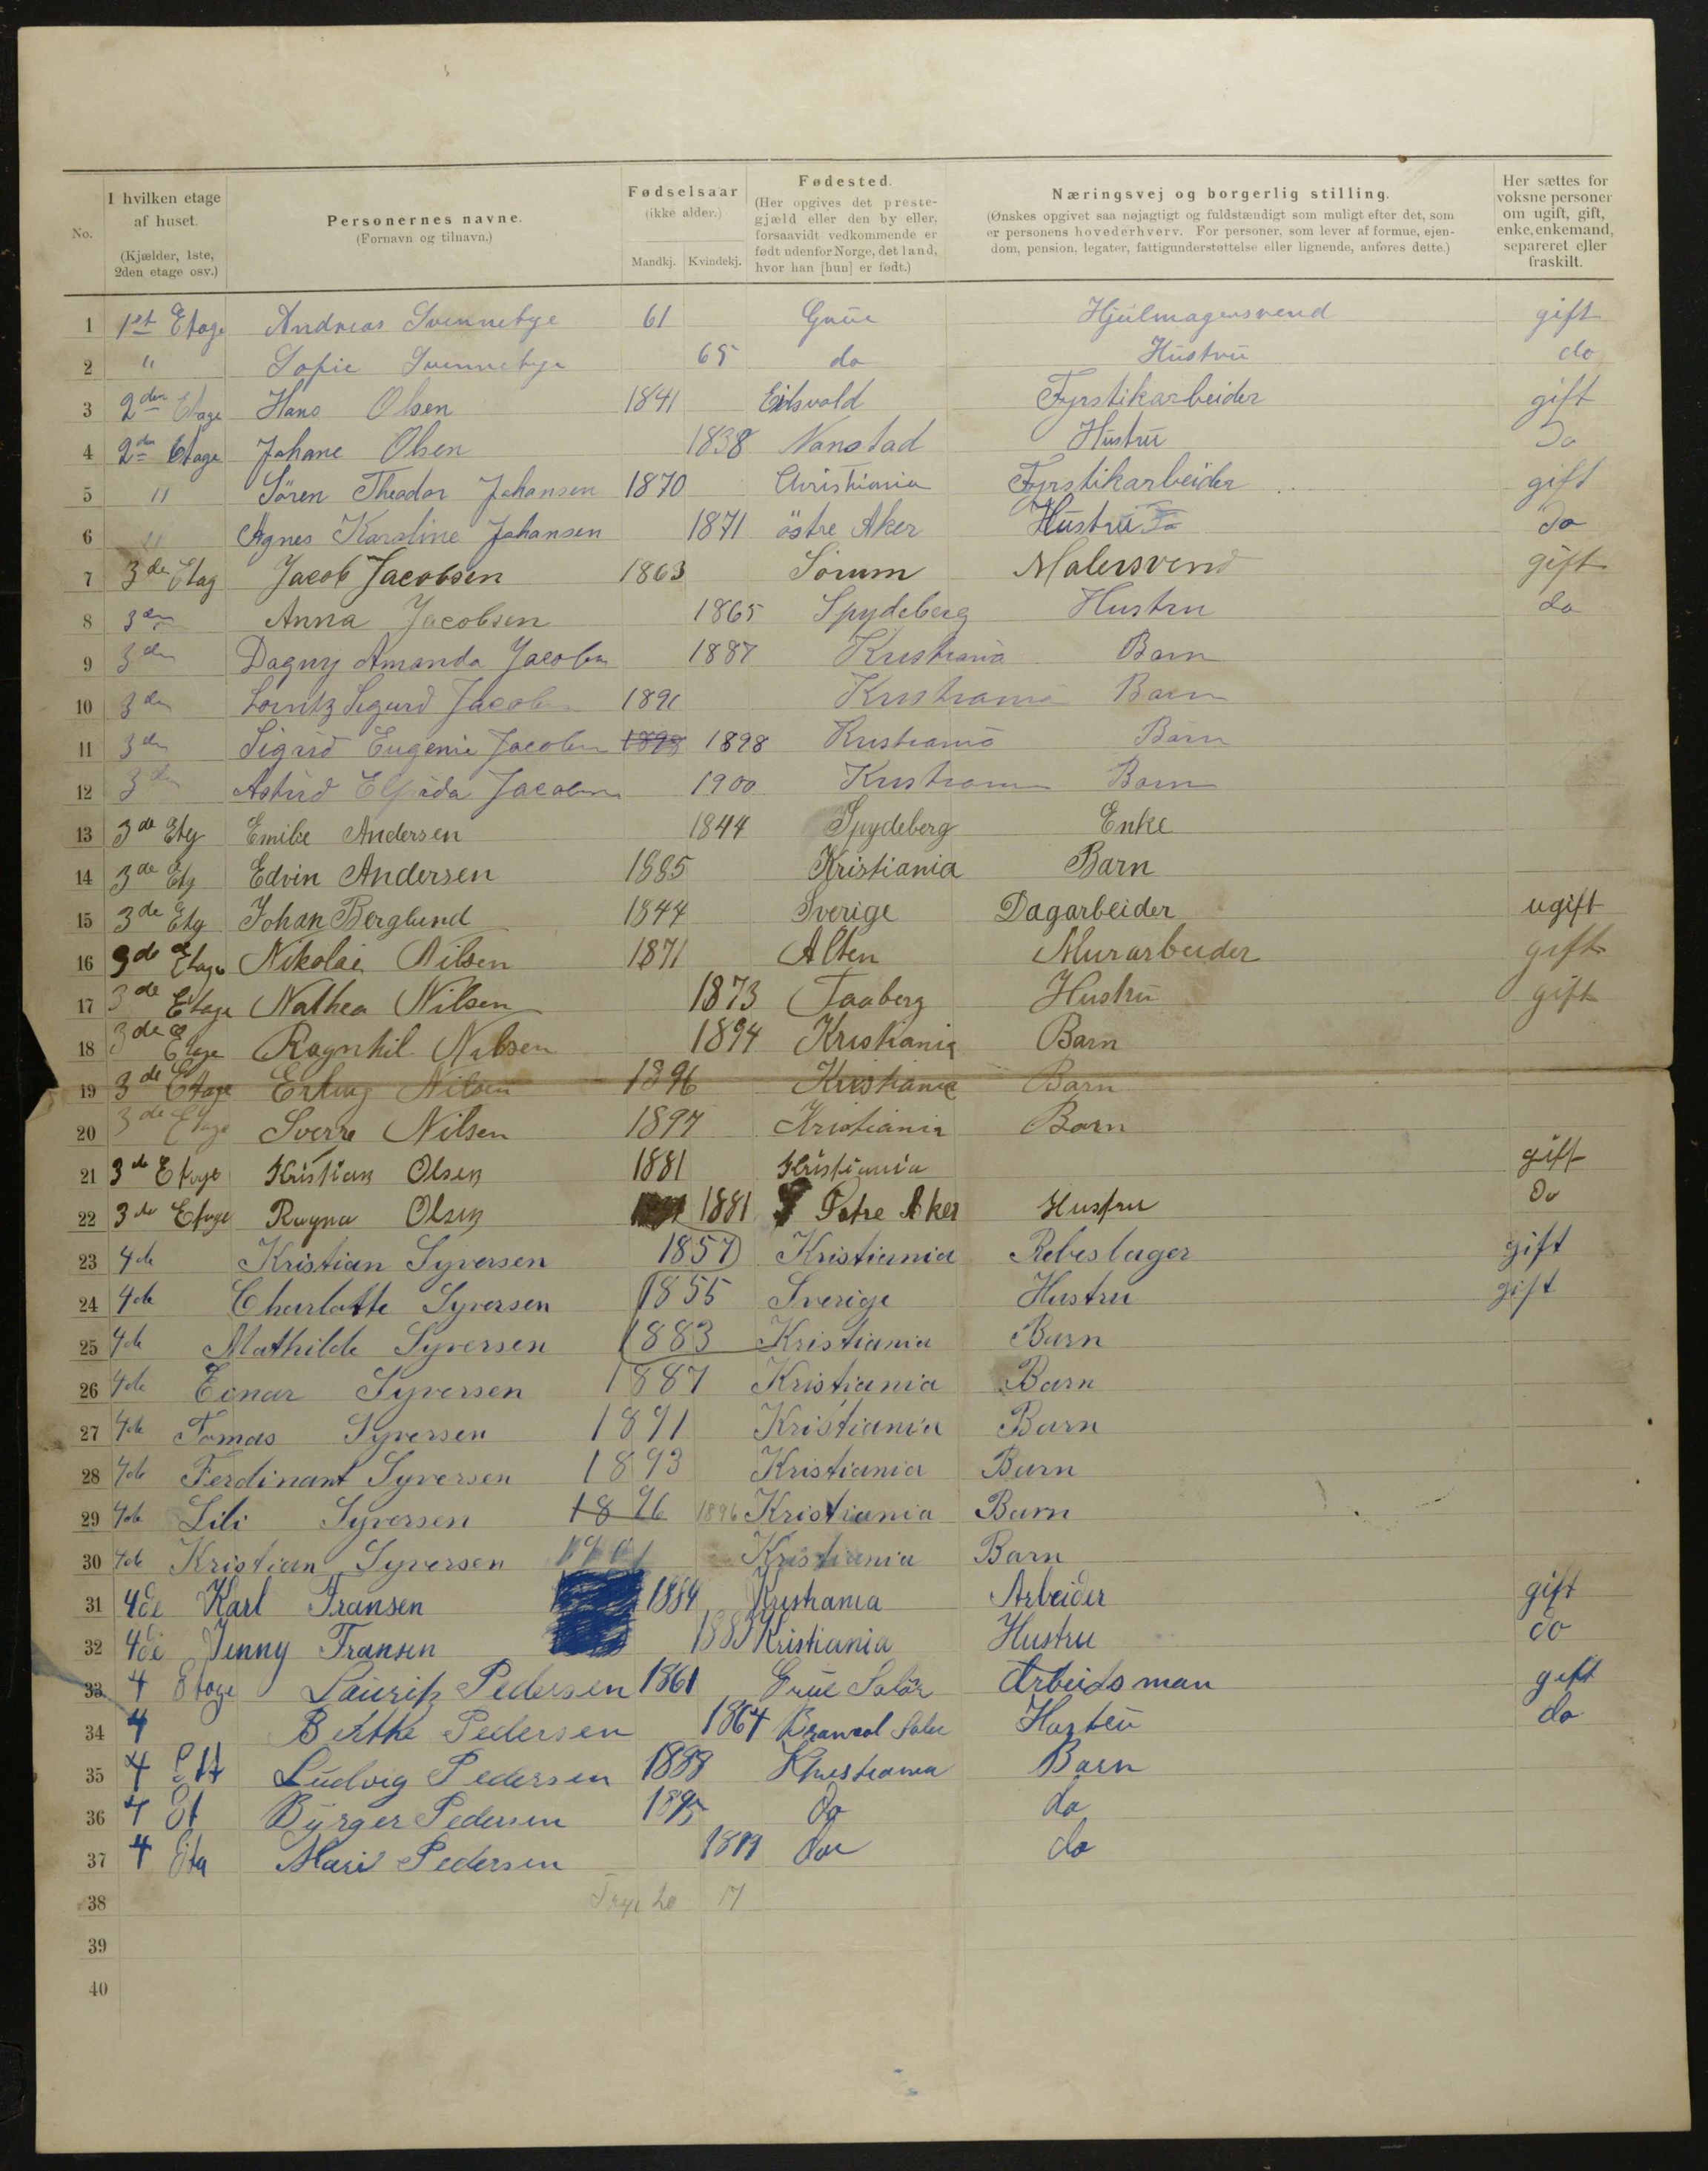 No.
I hvilken etage af huset. (Kjælder, 1ste, 2den etage osv.)
Personernes navne. (Fornavn og tilnavn.)
Fødselsaar (ikke alder.) Mandkj. Kvindekj.
Fødested. (Her opgives det prestegjæld eller den by eller, forsaavidt vedkommende er født udenfor Norge, det land, hvor han [hun] er født.)
Næringsvej og borgerlig stilling. (Ønskes opgivet saa nøjagtigt og fuldstændigt som muligt efter det, som er personens hovederhverv. For personer, som lever af formue, ejendom, pension, legater, fattigunderstøttelse eller lignende, anføres dette.)
Her sættes for voksne personer om ugift, gift, enke, enkemand, separeret eller fraskilt.
1 1st Etage Andreas Svennebye 61 Grue Hjulmagersvend gift
2 " Sofie Svennebye 65 do Hustru do
3 2den Etage Hans Olsen 1841 Eidsvold Fyrstikarbeider gift
4 2den Etage Johane Olsen 1838 Nanstad Hustru Do
5 " Sören Theodor Johansen 1870 Christiania Fyrstikarbeider gift
6 " Agnes Karoline Johansen 1871 östre Aker Hustru Do
7 3den Etag Jacob Jacobsen 1863 Sörum Malersvend gift
8 3den Anna Jacobsen 1865 Spydeberg Hustru do
9 3den Dagny Amanda Jacobsen 1887 Kristiania Barn
10 3den Lorentz Sigurd Jacobsen 1891 Kristiania Barn
11 3den Sigrid Eugenie Jacobsen 1898 1898 Kristiania Barn
12 3den Astrid Jacobsen 1900 Kristiania Barn
13 3de Etg Emilie Andersen 1844 Spydeberg Enke
14 3de Etg Edvin Andersen 1885 Kristiania Barn
15 3de Etg Johan Berglund 1844 Sverige Dagarbeider ugift
16 3de Etage Nikolai Nilsen 1871 Alten Murarbeider gift
17 3de Etage Nathea Nilsen 1873 Faaberg Hustru gift
18 3de Etage Ragnhil Nilsen 1894 Kristiania Barn
19 3de Etage Erling Nilsen 1896 Kristiania Barn
20 3de Etage Sverre Nilsen 1897 Kristiania Barn
21 3de Etage Kristian Olsen 1881 Kristiania gift
22 3de Etage Ragna Olsen 1881 Østre Aker Hustru Do
23 4de Kristian Syversen 1857 Kristiania Rebeslager gift
24 4de Charlotte Syversen 1855 Sverige Hustru gift
25 4de Mathilde Syversen 1883 Kristiania Barn
26 4de Einar Syversen 1887 Kristiania Barn
27 4de Tomas Syversen 1891 Kristiania Barn
28 4de Ferdinant Syversen 1893 Kristiania Barn
29 4de Lili Syversen 1896 1896 Kristiania Barn
30 4de Kristian Syversen 1901 Kristiania Barn
31 4de Karl Fransen 1884 Kristiania Arbeider gift
32 4de Jenny Fransen Kristiania Hustru do
33 4 Etage Lauritz Pedersen 1861 Grue Solör Arbeidsman gift
34 4 Berthe Pedersen 1864 Hustru do
35 4 Ett Ludvig Pedersen 1888 Khristiania Barn
36 4 Et Byrger Pedersen 1895 Do do
37 4 Eta Mari Pedersen do do
38 20 17
39
40